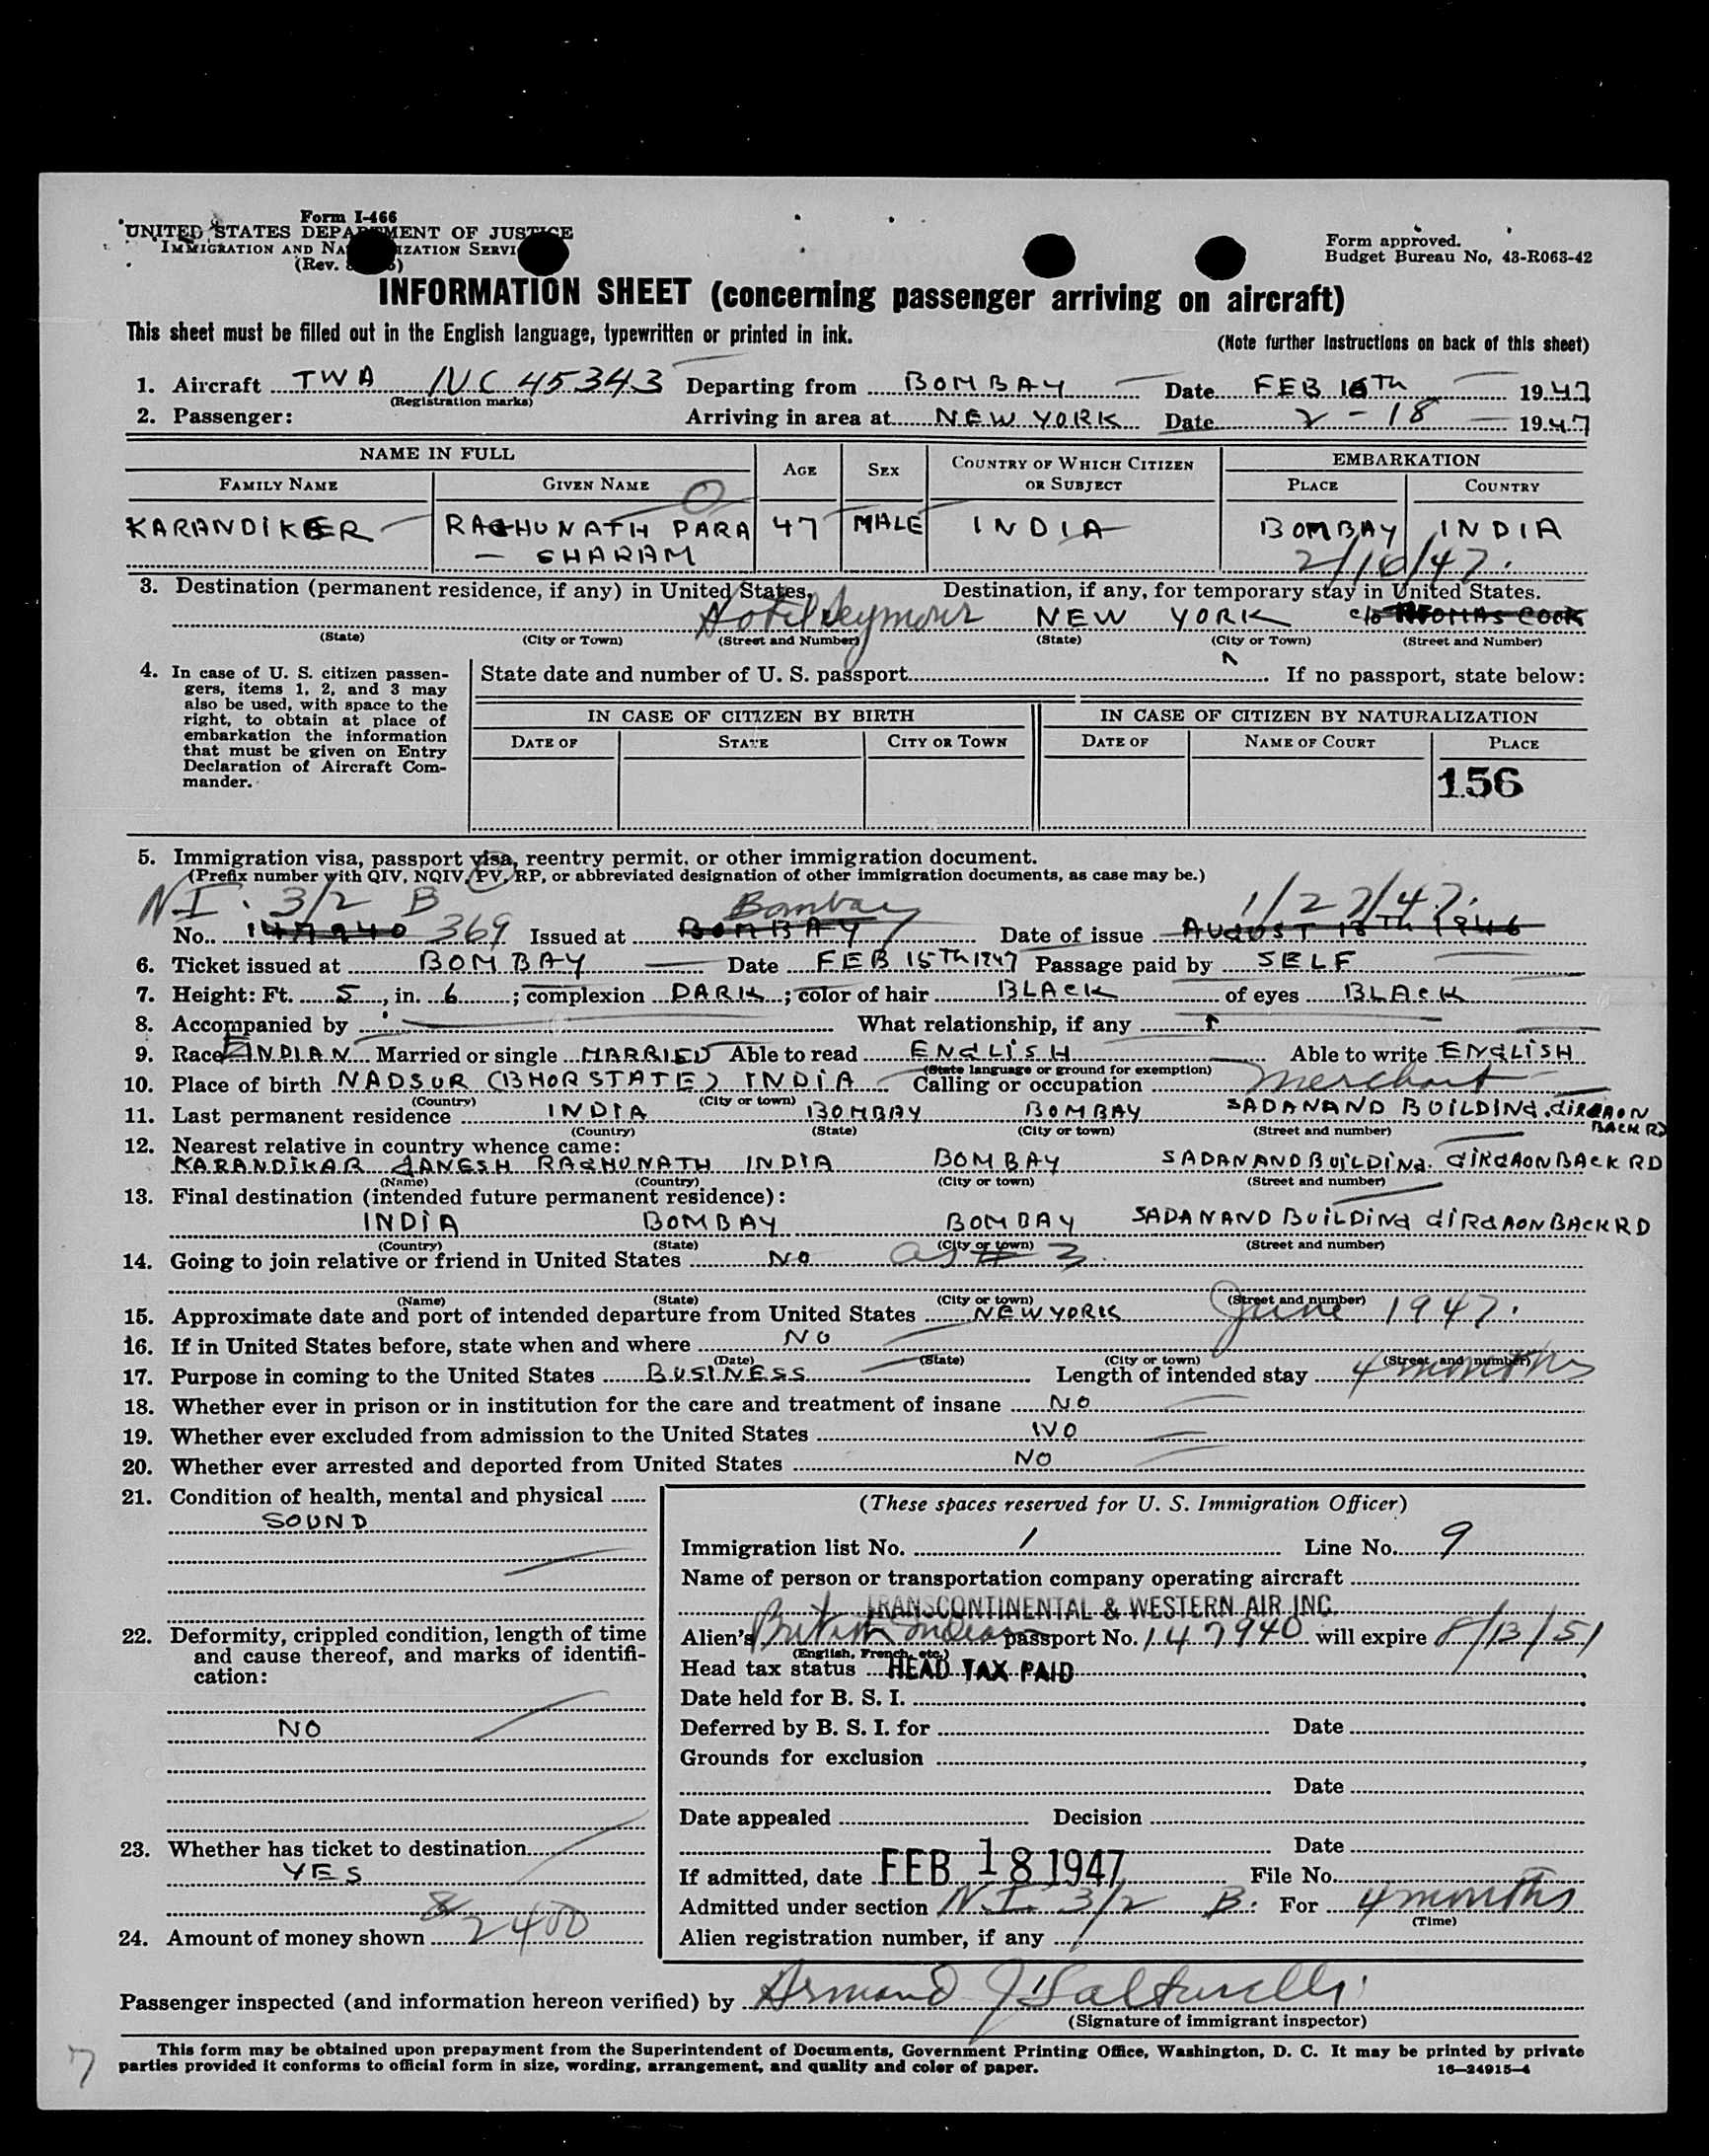 Form I-466
UNITED STATES DEPARTMENT OF JUSTICE
IMMIGRATION AND NATURALIZATION SERVICE
(Rev.
Form approved.
Budget Bureau No. 43-R063-42
INFORMATION SHEET (concerning passenger arriving on aircraft)
This sheet must be filled out in the English language, typewritten or printed in ink.
(Note further instructions on back of this sheet)
1. Aircraft TWA NC 45343 Departing from BOMBAY Date FEB 16Th 1947
(Registration marks)
2. Passenger: Arriving in area at NEW YORK Date 2-18 1947
NAME IN FULL AGE SEX COUNTRY OF WHICH CITIZEN OR SUBJECT EMBARKATION
FAMILY NAME GIVEN NAME PLACE COUNTRY
KARANDIKER RAGHUNATH PARA 47 MALE INDIA BOMBAY INDIA
- SHARAM 2/16/47.
3. Destination (permanent residence, if any) in United States. Destination, if any, for temporary stay in United States.
Hotel Seymour NEW YORK c/o THOMAS COOK
(State) (City or Town) (Street and Number) (State) (City or Town) (Street and Number)
4. In case of U. S. citizen passengers, items 1, 2, and 3 may also be used, with space to the right, to obtain at place of embarkation the information that must be given on Entry Declaration of Aircraft Commander.
State date and number of U. S. passport If no passport, state below:
IN CASE OF CITIZEN BY BIRTH IN CASE OF CITIZEN BY NATURALIZATION
DATE OF STATE CITY OR TOWN DATE OF NAME OF COURT PLACE
156
5. Immigration visa, passport visa, reentry permit, or other immigration document.
(Prefix number with QIV, NQIV, PV, RP, or abbreviated designation of other immigration documents, as case may be.)
N.I. 3/2 B Bombay 1/27/47.
No. 147940 369 Issued at BOMBAY Date of issue AUGUST 13Th 1946
6. Ticket issued at BOMBAY Date FEB 15Th 1947 Passage paid by SELF
7. Height: Ft. 5, in. 6; complexion DARK; color of hair BLACK of eyes BLACK
8. Accompanied by What relationship, if any
9. Race INDIAN Married or single MARRIED Able to read ENGLISH Able to write ENGLISH
(State language or ground for exemption)
10. Place of birth NADSUR (BHOR STATE) INDIA Calling or occupation Merchant
(Country) (City or town)
11. Last permanent residence INDIA BOMBAY BOMBAY SADANAND BUILDING. GIRGAON BACK RD
(Country) (State) (City or town) (Street and number)
12. Nearest relative in country whence came:
KARANDIKAR GANESH RAGHUNATH INDIA BOMBAY SADANAND BUILDING. GIRGAON BACK RD
(Name) (Country) (City or town) (Street and number)
13. Final destination (intended future permanent residence):
INDIA BOMBAY BOMBAY SADANAND BUILDING GIRGAON BACK RD
(Country) (State) (City or town) (Street and number)
14. Going to join relative or friend in United States NO as # 3.
(Name) (State) (City or town) (Street and number)
15. Approximate date and port of intended departure from United States NEW YORK June 1947.
16. If in United States before, state when and where NO
(Date) (State) (City or town) (Street and number)
17. Purpose in coming to the United States BUSINESS Length of intended stay 4 months
18. Whether ever in prison or in institution for the care and treatment of insane NO
19. Whether ever excluded from admission to the United States NO
20. Whether ever arrested and deported from United States NO
21. Condition of health, mental and physical
SOUND
22. Deformity, crippled condition, length of time and cause thereof, and marks of identification:
NO
23. Whether has ticket to destination
YES
24. Amount of money shown $2400
(These spaces reserved for U. S. Immigration Officer)
Immigration list No. 1 Line No. 9
Name of person or transportation company operating aircraft
TRANSCONTINENTAL & WESTERN AIR INC.
Alien's British Indian passport No. 147940 will expire 8/13/51
(English, French, etc.)
Head tax status HEAD TAX PAID
Date held for B. S. I.
Deferred by B. S. I. for Date
Grounds for exclusion
Date
Date appealed Decision
Date
If admitted, date FEB 18 1947 File No.
Admitted under section N.I. 3/2 B. For 4 months
(Time)
Alien registration number, if any
Passenger inspected (and information hereon verified) by Armand J
(Signature of immigrant inspector)
This form may be obtained upon prepayment from the Superintendent of Documents, Government Printing Office, Washington, D. C. It may be printed by private
parties provided it conforms to official form in size, wording, arrangement, and quality and color of paper.
16—24915-4
7